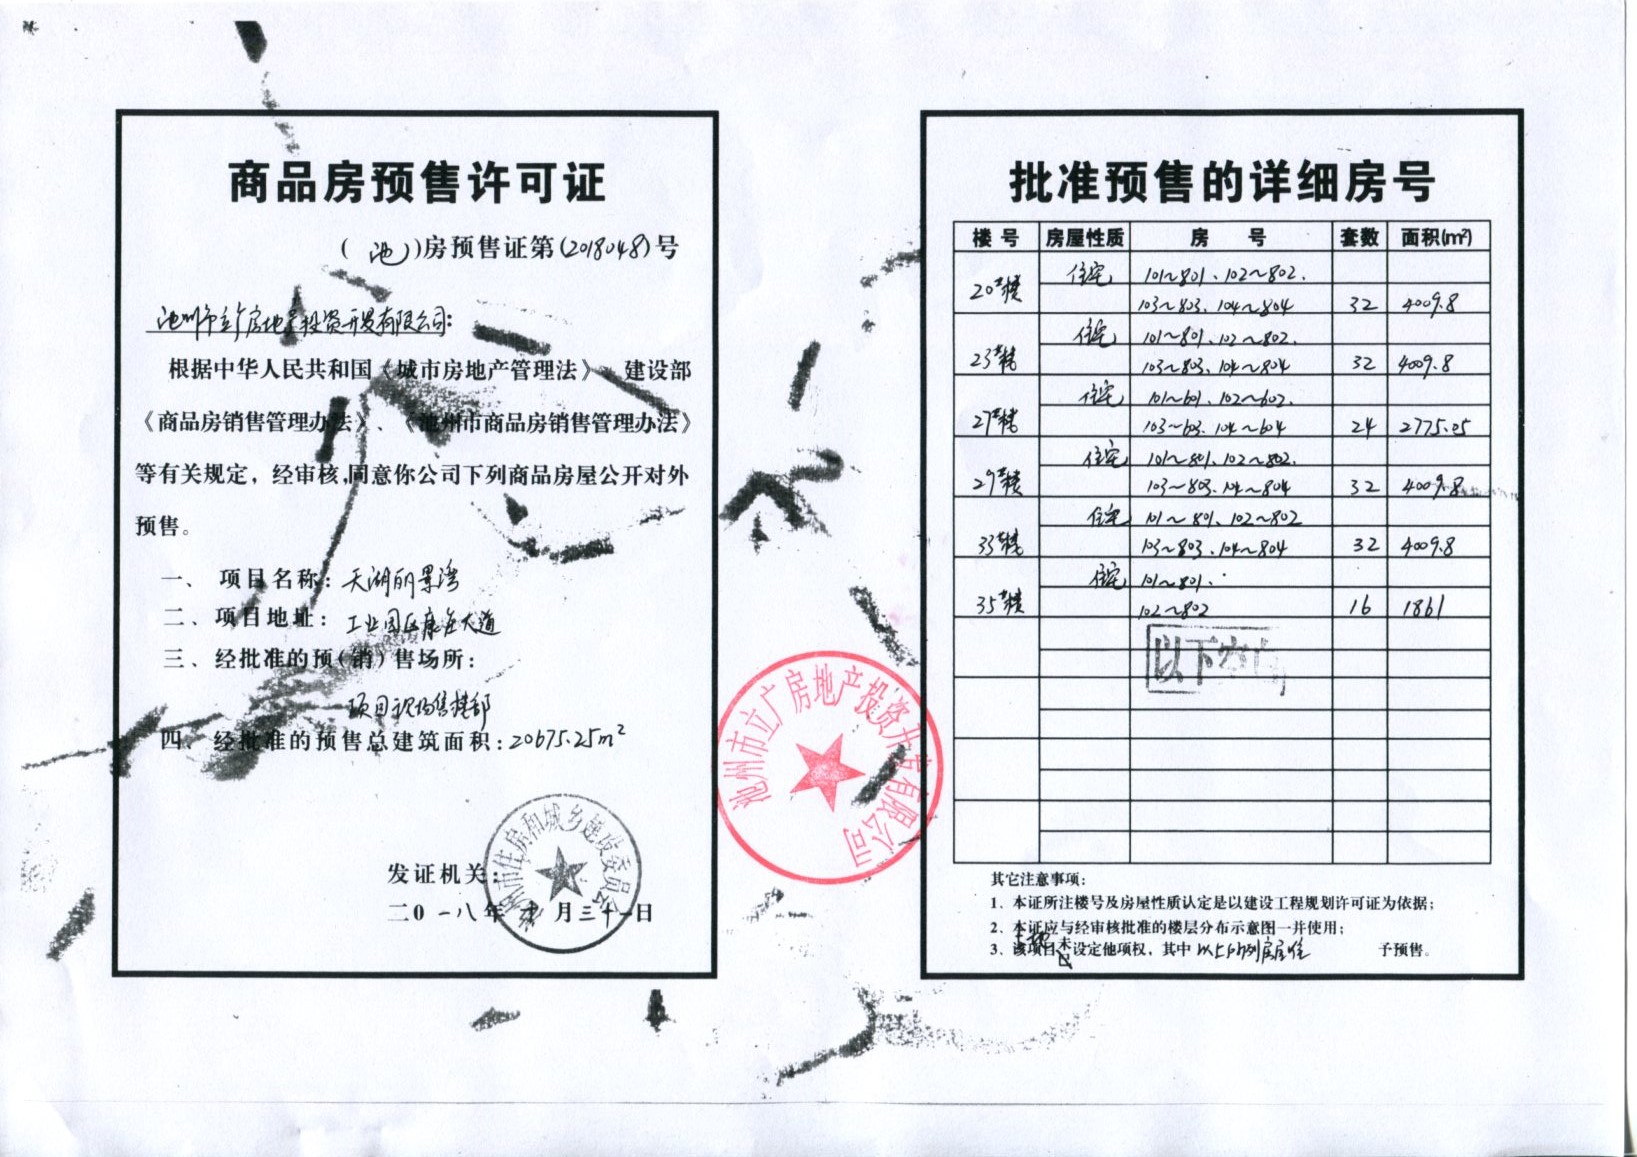 商品房预售许可证
(池)房预售证第(2018048)号
池州市立广房地产投资开发有限公司:
根据中华人民共和国《城市房地产管理法》、建设部
《商品房销售管理办法》、《池州市商品房销售管理办法》
等有关规定，经审核,同意你公司下列商品房屋公开对外
预售。
一、 项目名称: 天湖丽景湾
二、项目地址: 工业园区康庄大道
三、经批准的预(销)售场所:
项目现场售楼部
四、经批准的预售总建筑面积:20675.25m²
发证机关:
二0一八年 十 月三十一日
市住房和城乡建设委员会
池州市立广房地产投资开发有限公司
批准预售的详细房号
楼号 房屋性质 房 号 套数 面积(m²)
20#楼 住宅 101~801、102~802、
103~803、104~804 32 4009.8
23#楼 住宅 101~801、102~802、
103~803、104~804 32 4009.8
27#楼 住宅 101~601、102~602、
103~603、104~604 24 2775.05
29#楼 住宅 101~801、102~802、
103~803、104~804 32 4009.8
33#楼 住宅 101~801、102~802
103~803、104~804 32 4009.8
35#楼 住宅 101~801、
102~802 16 1861
以下空白
其它注意事项:
1、本证所注楼号及房屋性质认定是以建设工程规划许可证为依据;
2、本证应与经审核批准的楼层分布示意图一并使用;
3、该项目土地未设定他项权，其中 以上所列房屋准 予预售。